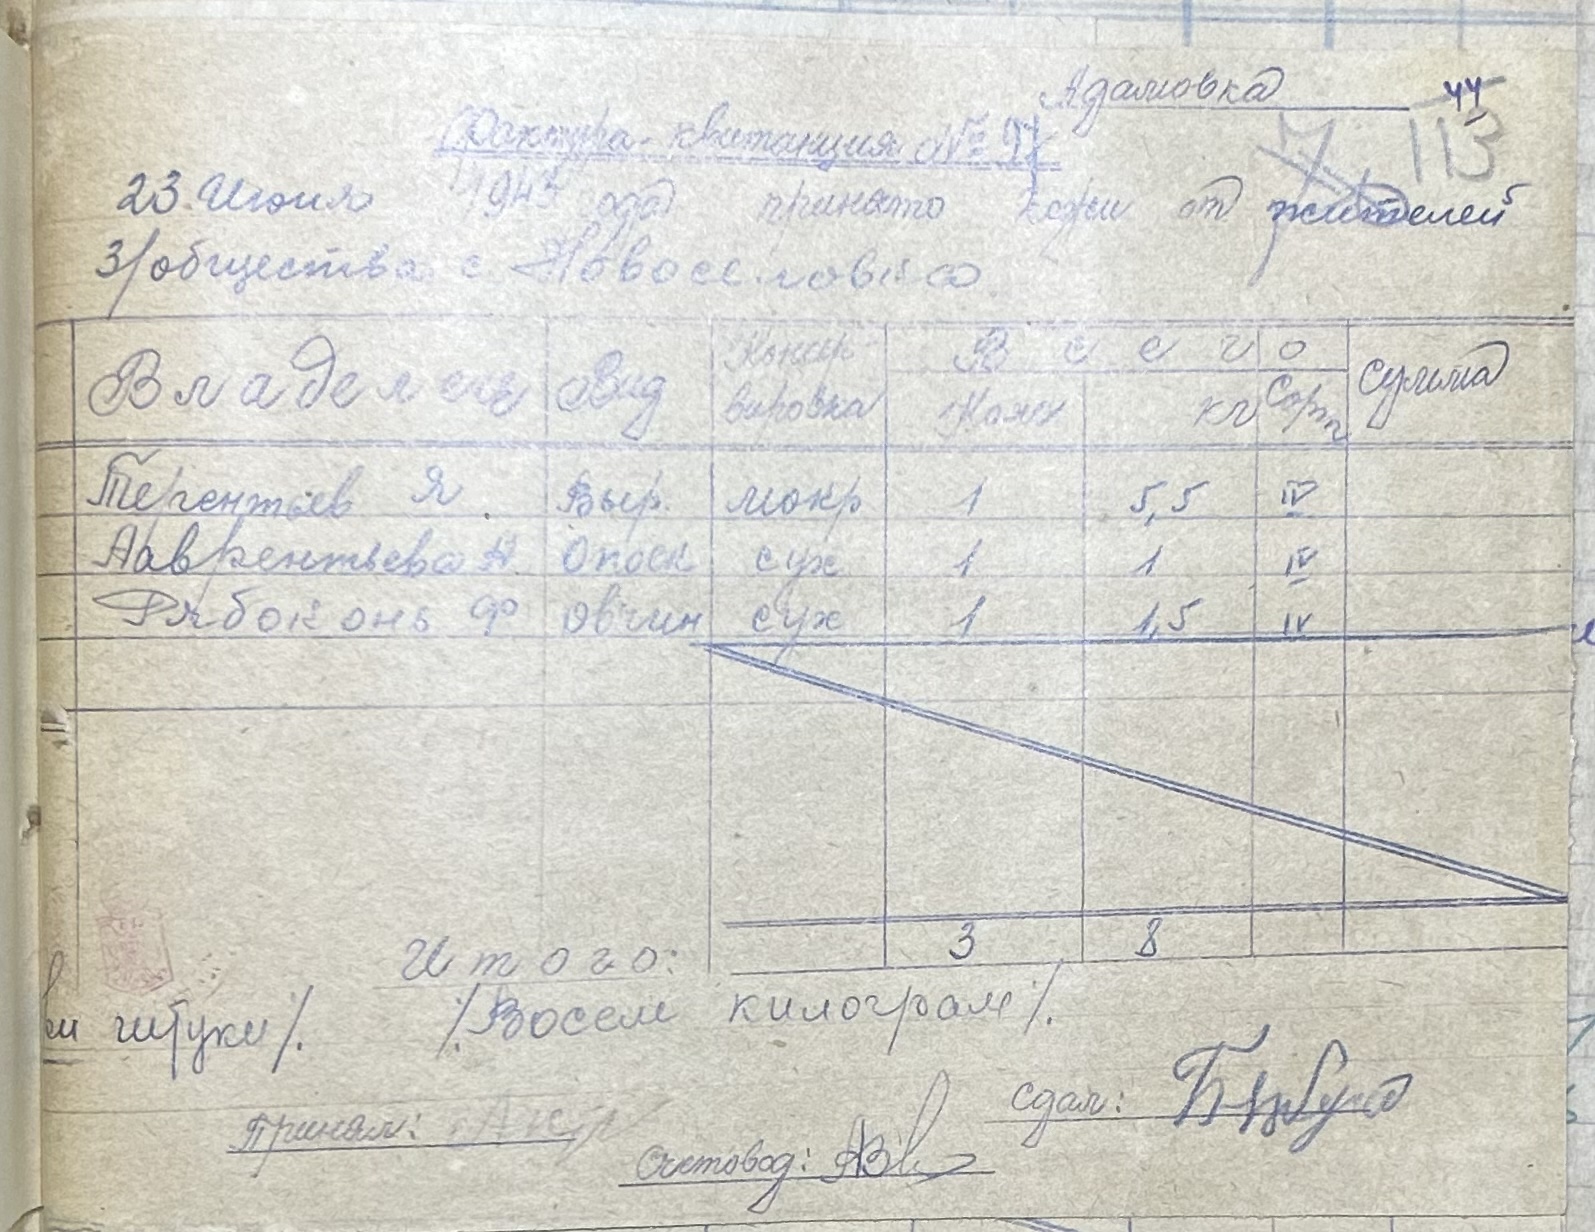 Адамовка 44
113
Фактура-квитанция №
23 Июня 1943 года принято кожи от жителей
З/общества с Новоселовка
Владелец Вид Консервировка Всего Сумма
Колич кг Сорт
Терентьев Я. Выр. мокр 1 5,5 IV
Лаврентьева А. Опоек сух 1 1 IV
Рябоконь Ф овчин сух 1 1,5 IV
Итого: 3 8
штуки/. /.Восем килограм/.
Сдал:
Принял:
Счетовод: